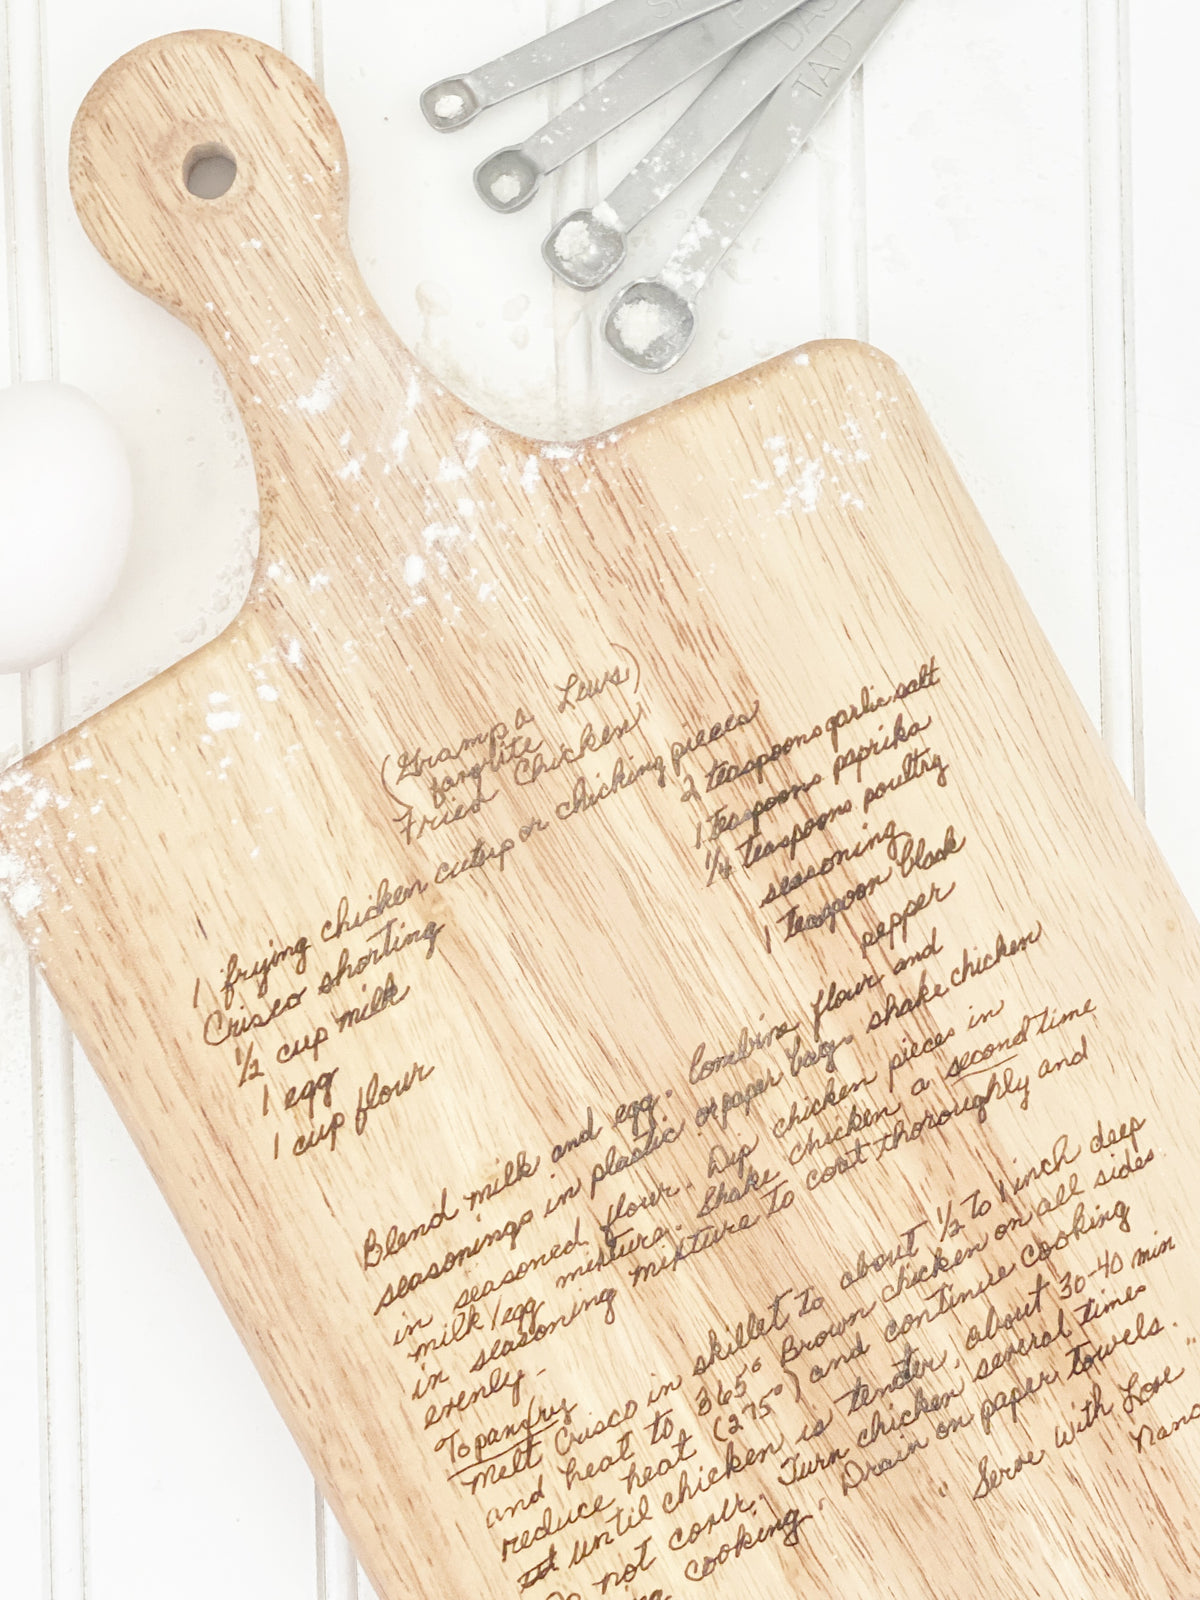 TAD
(Grampa Lews)
favorite
Fried Chicken
1 frying chicken cutup or chicking pieces
Crisco shorting
1/2 cup milk
1 egg
1 cup flour
2 teaspoons garlic salt
1 teaspoons paprika
1/4 teaspoons poultry
seasoning
1 teaspoon black
pepper
Blend milk and egg. Combine flour and
seasonings in plastic or paper bag. shake chicken
in seasoned flour. Dip chicken pieces in
milk/egg mixture. Shake chicken a second time
in seasoning mixture to coat thoroughly and
evenly.
To panfry
Melt Crisco in skillet to about 1/2 to 1 inch deep
and heat to 365° Brown chicken on all sides
reduce heat (275°) and continue cooking
until chicken is tender, about 30-40 min
Do not cover. Turn chicken several times
cooking. Drain on paper towels.
"Serve With Love"